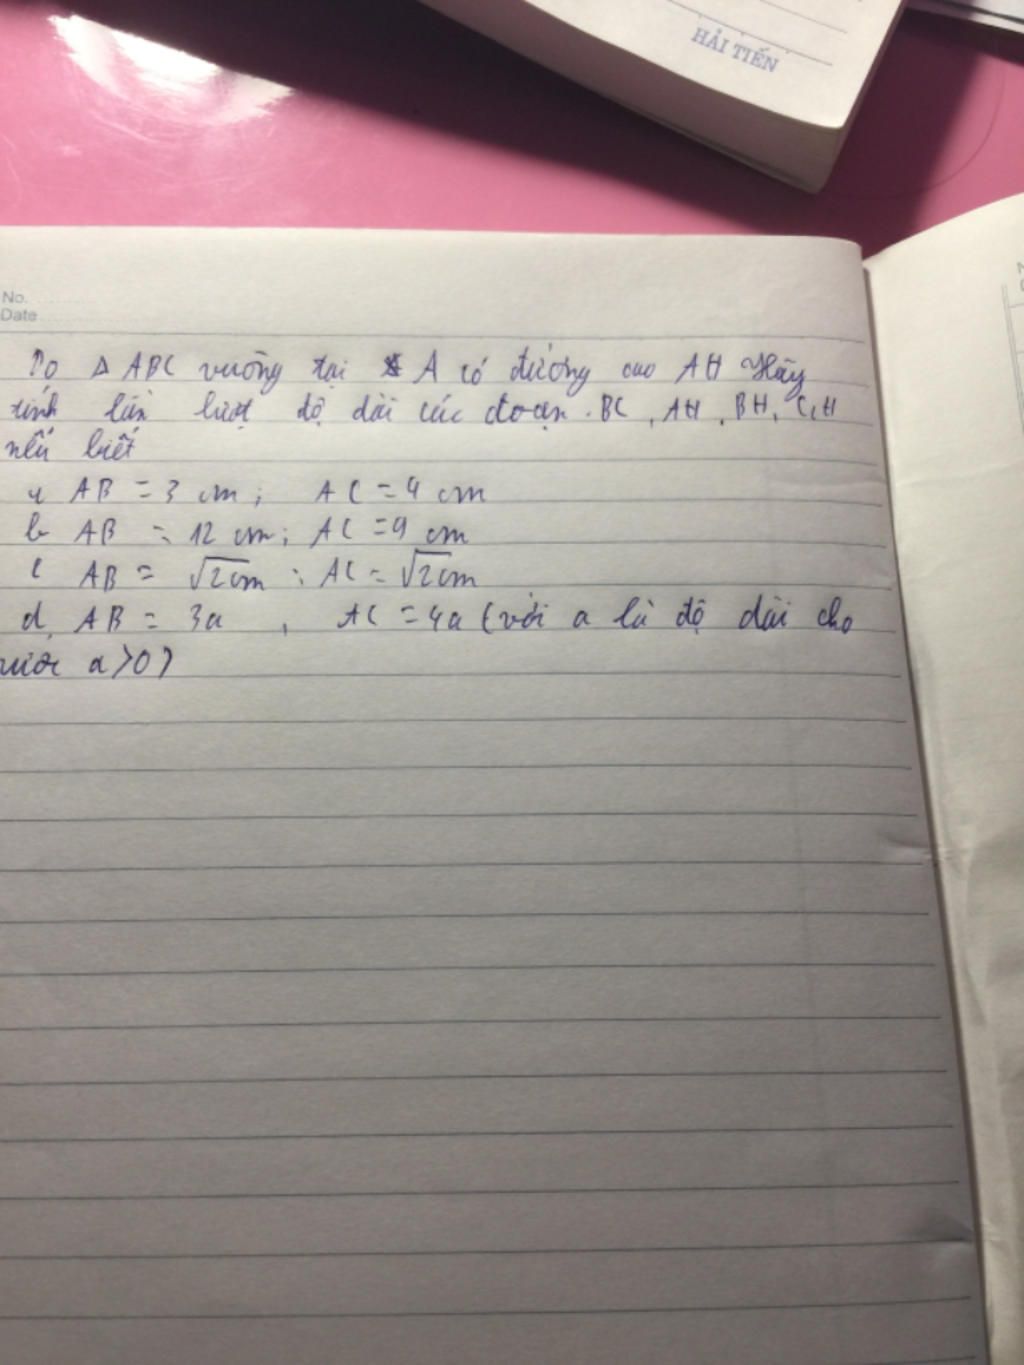 HẢI TIẾN
No.
Date
Do Δ ABC vuông tại A có đường cao AH Hãy
tính lần lượt độ dài các đoạn . BC , AH , BH, C,H
nếu biết
a AB = 3 cm ; AC = 4 cm
b AB = 12 cm ; AC = 9 cm
c AB = √2cm ; AC = √2cm
d, AB = 3a , AC = 4a (với a là độ dài cho
trước a > 0)